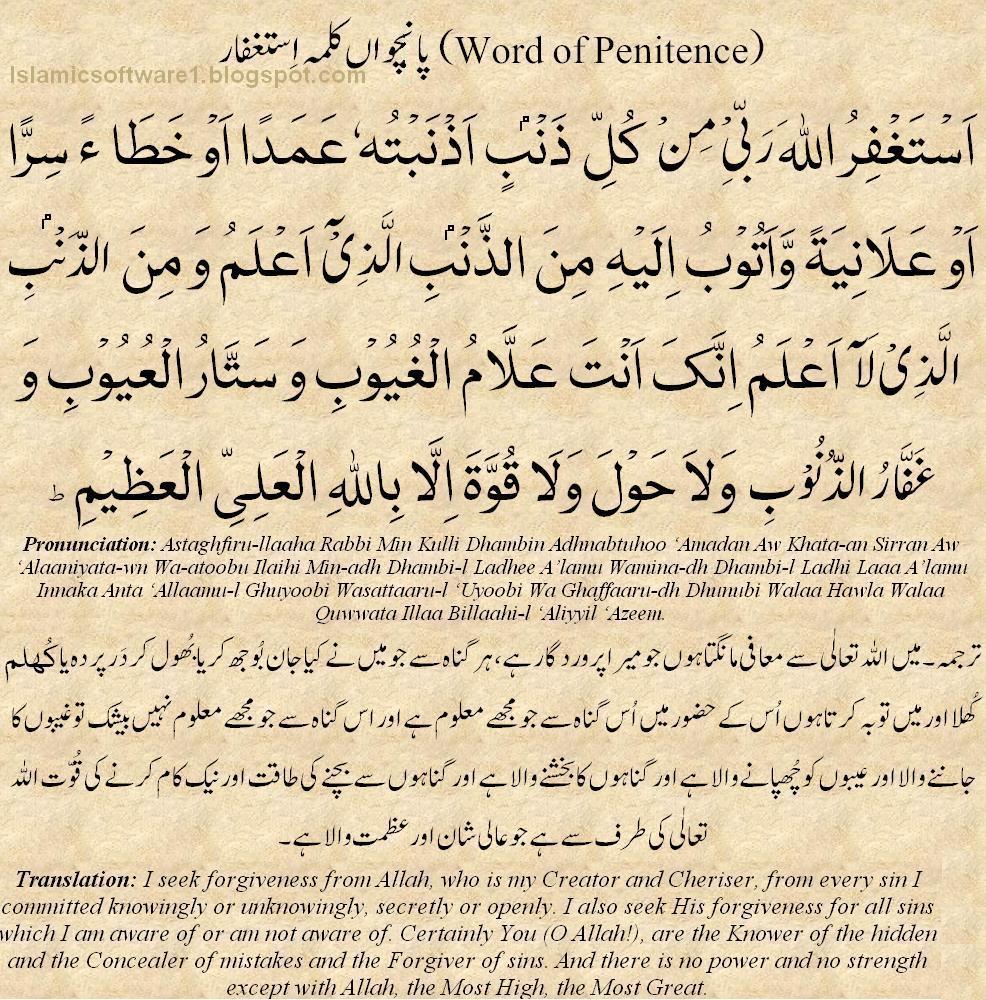 پانچواں کلمہ اِستغفار (Word of Penitence)
Islamicsoftware1.blogspot.com
اَسْتَغْفِرُ اللهَ رَبِّیْ مِنْ کُلِّ ذَنْۢبٍ اَذْنَبْتُهٗ عَمَدًا اَوْ خَطَاءً سِرًّا
اَوْ عَلَانِیَةً وَّاَتُوْبُ اِلَیْهِ مِنَ الذَّنْۢبِ الَّذِیْٓ اَعْلَمُ وَ مِنَ الذَّنْۢبِ
الَّذِیْ لَآ اَعْلَمُ اِنَّکَ اَنْتَ عَلَّامُ الْغُیُوْبِ وَ سَتَّارُ الْعُیُوْبِ وَ
غَفَّارُ الذُّنُوْبِ وَلَا حَوْلَ وَلَا قُوَّةَ اِلَّا بِاللهِ الْعَلِیِّ الْعَظِیْمِ ط
Pronunciation: Astaghfiru-llaaha Rabbi Min Kulli Dhambin Adhnabtuhoo ‘Amadan Aw Khata-an Sirran Aw
‘Alaaniyata-wn Wa-atoobu Ilaihi Min-adh Dhambi-l Ladhee A’lamu Wamina-dh Dhambi-l Ladhi Laaa A’lamu
Innaka Anta ‘Allaamu-l Ghuyoobi Wasattaaru-l ‘Uyoobi Wa Ghaffaaru-dh Dhunubi Walaa Hawla Walaa
Quwwata Illaa Billaahi-l ‘Aliyyil ‘Azeem.
ترجمہ۔ میں اللہ تعالٰی سے معافی مانگتا ہوں جو میرا پروردگار ہے، ہر گناہ سے جو میں نے کیا جان بُوجھ کر یا بُھول کر دَر پردہ یا کُھلم
کُھلا اور میں توبہ کرتا ہوں اُس کے حضور میں اُس گناہ سے جو مجھے معلوم ہے اور اس گناہ سے جو مجھے معلوم نہیں بیشک تو غیبوں کا
جاننے والا اور عیبوں کو چُھپانے والا ہے اور گناہوں کا بخشنے والا ہے اور گناہوں سے بچنے کی طاقت اور نیک کام کرنے کی قُوّت اللہ
تعالٰی کی طرف سے ہے جو عالی شان اور عظمت والا ہے۔
Translation: I seek forgiveness from Allah, who is my Creator and Cheriser, from every sin I
committed knowingly or unknowingly, secretly or openly. I also seek His forgiveness for all sins
which I am aware of or am not aware of. Certainly You (O Allah!), are the Knower of the hidden
and the Concealer of mistakes and the Forgiver of sins. And there is no power and no strength
except with Allah, the Most High, the Most Great.